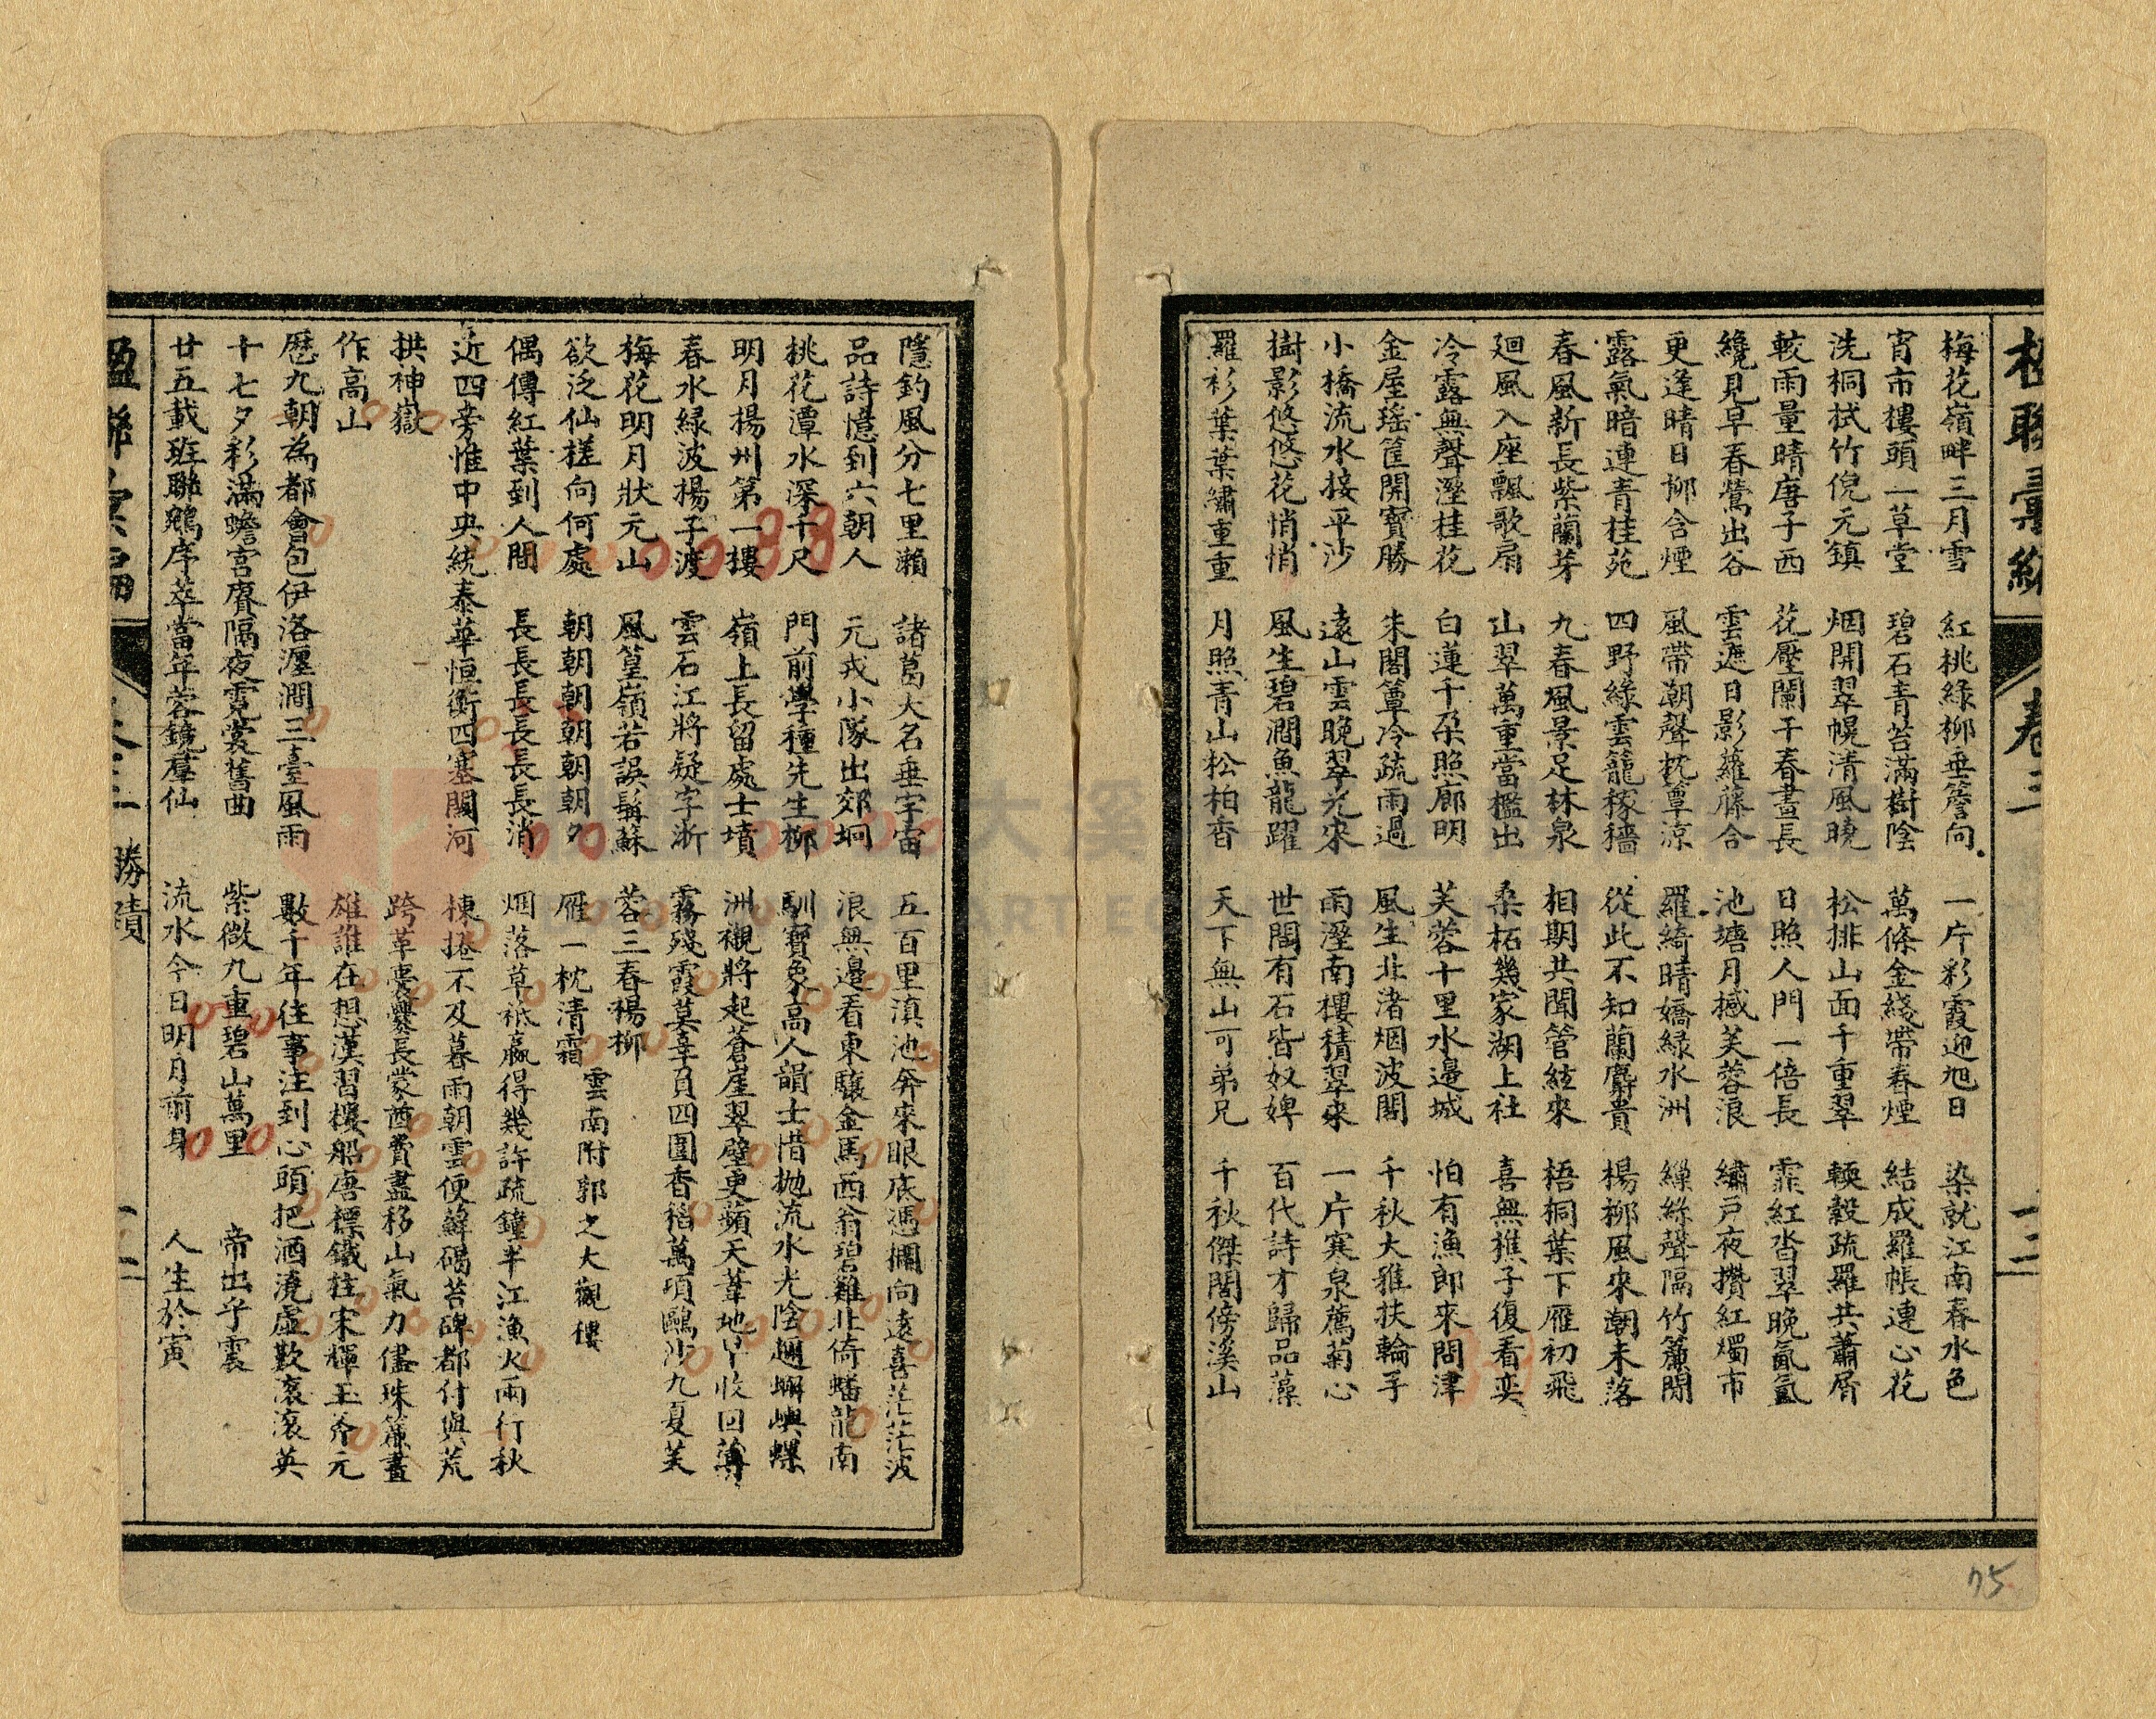 楹聯彙編 卷三 十二
梅花嶺畔三月雪 紅桃綠柳垂簷向 一片彩霞迎旭日 染就江南春水色
宵市樓頭一草堂 碧石青苔滿樹陰 萬條金綫帶春煙 結成羅帳連心花
洗桐拭竹倪元鎮 烟開翠幌清風曉 松排山面千重翠 輭縠疏羅共蕭屑
較雨量晴唐子西 花壓闌干春晝長 日照人門一倍長 霏紅沓翠晚氤氳
纔見早春鶯出谷 雲遮日影蘿藤合 池塘月撼芙蓉浪 繡戶夜攢紅燭市
更逢晴日柳含煙 風帶潮聲枕簟涼 羅綺晴嬌綠水洲 繰絲聲隔竹簾間
露氣暗連青桂苑 四野綠雲籠稼穡 從此不知蘭麝貴 楊柳風來潮未落
春風新長紫蘭芽 九春風景足林泉 相期共聞管絃來 梧桐葉下雁初飛
廻風入座飄歌扇 山翠萬重當檻出 桑柘幾家湖上社 喜無樵子復看奕
冷露無聲溼桂花 白蓮千朵照廊明 芙蓉十里水邊城 怕有漁郎來問津
金屋瑤筐開寶勝 朱閣簟冷疏雨過 風生北渚烟波闊 千秋大雅扶輪手
小橋流水接平沙 遠山雲晚翠光來 雨溼南樓積翠來 一片寒泉薦菊心
樹影悠悠花悄悄 風生碧澗魚龍躍 世間有石皆奴婢 百代詩才歸品藻
羅衫葉葉繡重重 月照青山松柏香 天下無山可弟兄 千秋傑閣傍溪山
隱釣風分七里瀨 諸葛大名垂宇宙 五百里滇池奔來眼底憑欄向遠喜茫茫波
品詩憶到六朝人 元戎小隊出郊坰 浪無邊看東驤金馬西翁碧雞北倚蟠龍南
桃花潭水深千尺 門前學種先生柳 馴寶象高人韻士惜拋流水光陰趣蟹嶼螺
明月揚州第一樓 嶺上長留處士墳 洲襯將起蒼崖翠壁更蘋天葦地早收回薄
春水綠波楊子渡 雲石江將疑字浙 霧殘霞莫辜負四圍香稻萬項鷗沙九夏芙
梅花明月狀元山 風篁嶺若誤髯蘇 蓉三春楊柳
欲泛仙槎向何處 朝朝朝朝朝朝夕 雁一枕清霜 雲南附郭之大觀樓
偶傳紅葉到人間 長長長長長長消 烟落草衹贏得幾許疏鐘半江漁火兩行秋
近四旁惟中央統泰華恒衡四塞關河 棟捲不及暮雨朝雲便蘚碣苔碑都付與荒
拱神嶽 跨革囊爨長蒙酋費盡移山氣力儘珠簾畫
作高山 雄誰在想漢習樓船唐標鐵柱宋揮玉斧元
歷九朝為都會包伊洛瀍澗三臺風雨 數千年往事注到心頭把酒澆虛歎滾滾英
十七夕彩滿蟾宮賡隔夜霓裳舊曲 紫微九重碧山萬里 帝出乎震
廿五載班聯鵷序萃當年蓉鏡羣仙 流水今日明月前身 人生於寅
楹聯彙編 卷三 勝蹟 十二
75